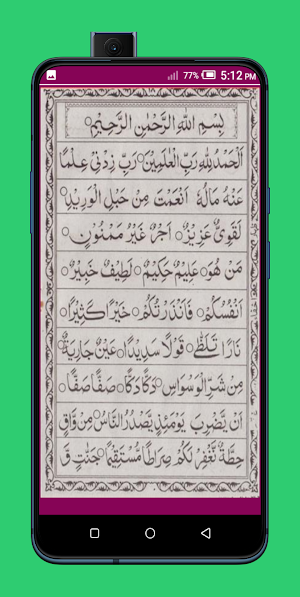 77% 5:12 PM
بِسْمِ اللهِ الرَّحْمٰنِ الرَّحِيْمِ
اَلْحَمْدُ لِلّٰهِ رَبِّ الْعٰلَمِيْنَ ○ رَبِّ زِدْنِيْ عِلْمًا
عَنْهُ مَالُهٗ اَنْعَمْتَ مِنْ حَبْلِ الْوَرِيْدِ ○
لَقَوِيٌّ عَزِيْزٌ ○ اَجْرٌ غَيْرُ مَمْنُوْنٍ ○
مَنْ هُوَ ○ عَلِيْمٌ حَكِيْمٌ ○ لَطِيْفٌ خَبِيْرٌ ○
اَنْفُسَكُمْ ○ فَاَنْذَرْتُكُمْ ○ خَيْرًا كَثِيْرًا ○
نَارًا تَلَظّٰى ○ قَوْلًا سَدِيْدًا ○ عَيْنٌ جَارِيَةٌ ○
مِنْ شَرِّ الْوَسْوَاسِ ○ دَكًّا دَكًّا ○ صَفًّا صَفًّا ○
اَنْ يَّضْرِبَ يَوْمَئِذٍ يَّصْدُرُ النَّاسُ ○ مِنْ وَّاقٍ
حِطَّةٌ نَّغْفِرْ لَكُمْ صِرَاطًا مُّسْتَقِيْمًا ○ جَنّٰتٍ وَّ